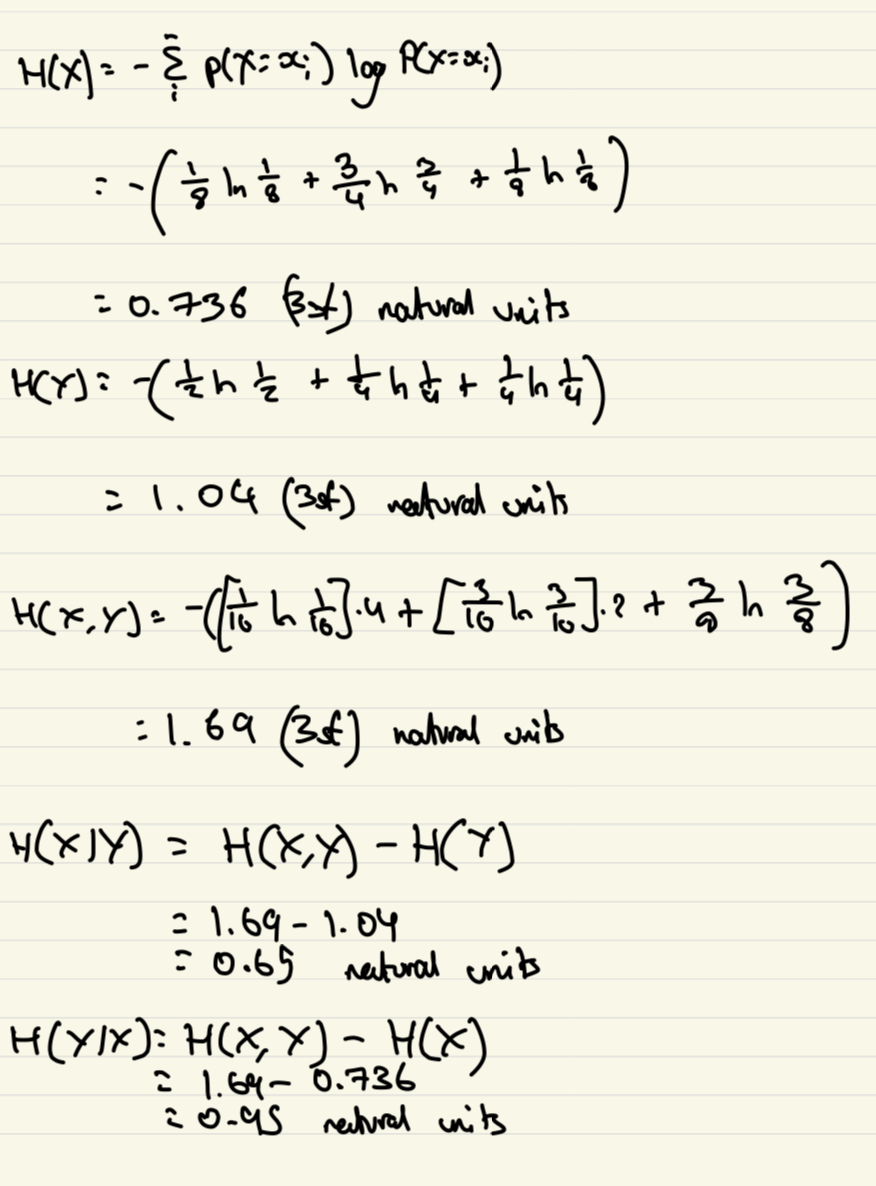 H(X) = - Σ_i^n p(X=x_i) log P(X=x_i)
= -(1/8 ln 1/8 + 3/4 ln 3/4 + 1/8 ln 1/8)
= 0.736 (3sf) natural units
H(Y) = -(1/2 ln 1/2 + 1/4 ln 1/4 + 1/4 ln 1/4)
= 1.04 (3sf) natural units
H(X,Y) = -([1/16 ln 1/16].4 + [3/16 ln 3/16].2 + 3/8 ln 3/8)
= 1.69 (3sf) natural units
H(X|Y) = H(X,Y) - H(Y)
= 1.69 - 1.04
= 0.65 natural units
H(Y|X) = H(X,Y) - H(X)
= 1.69 - 0.736
= 0.95 natural units